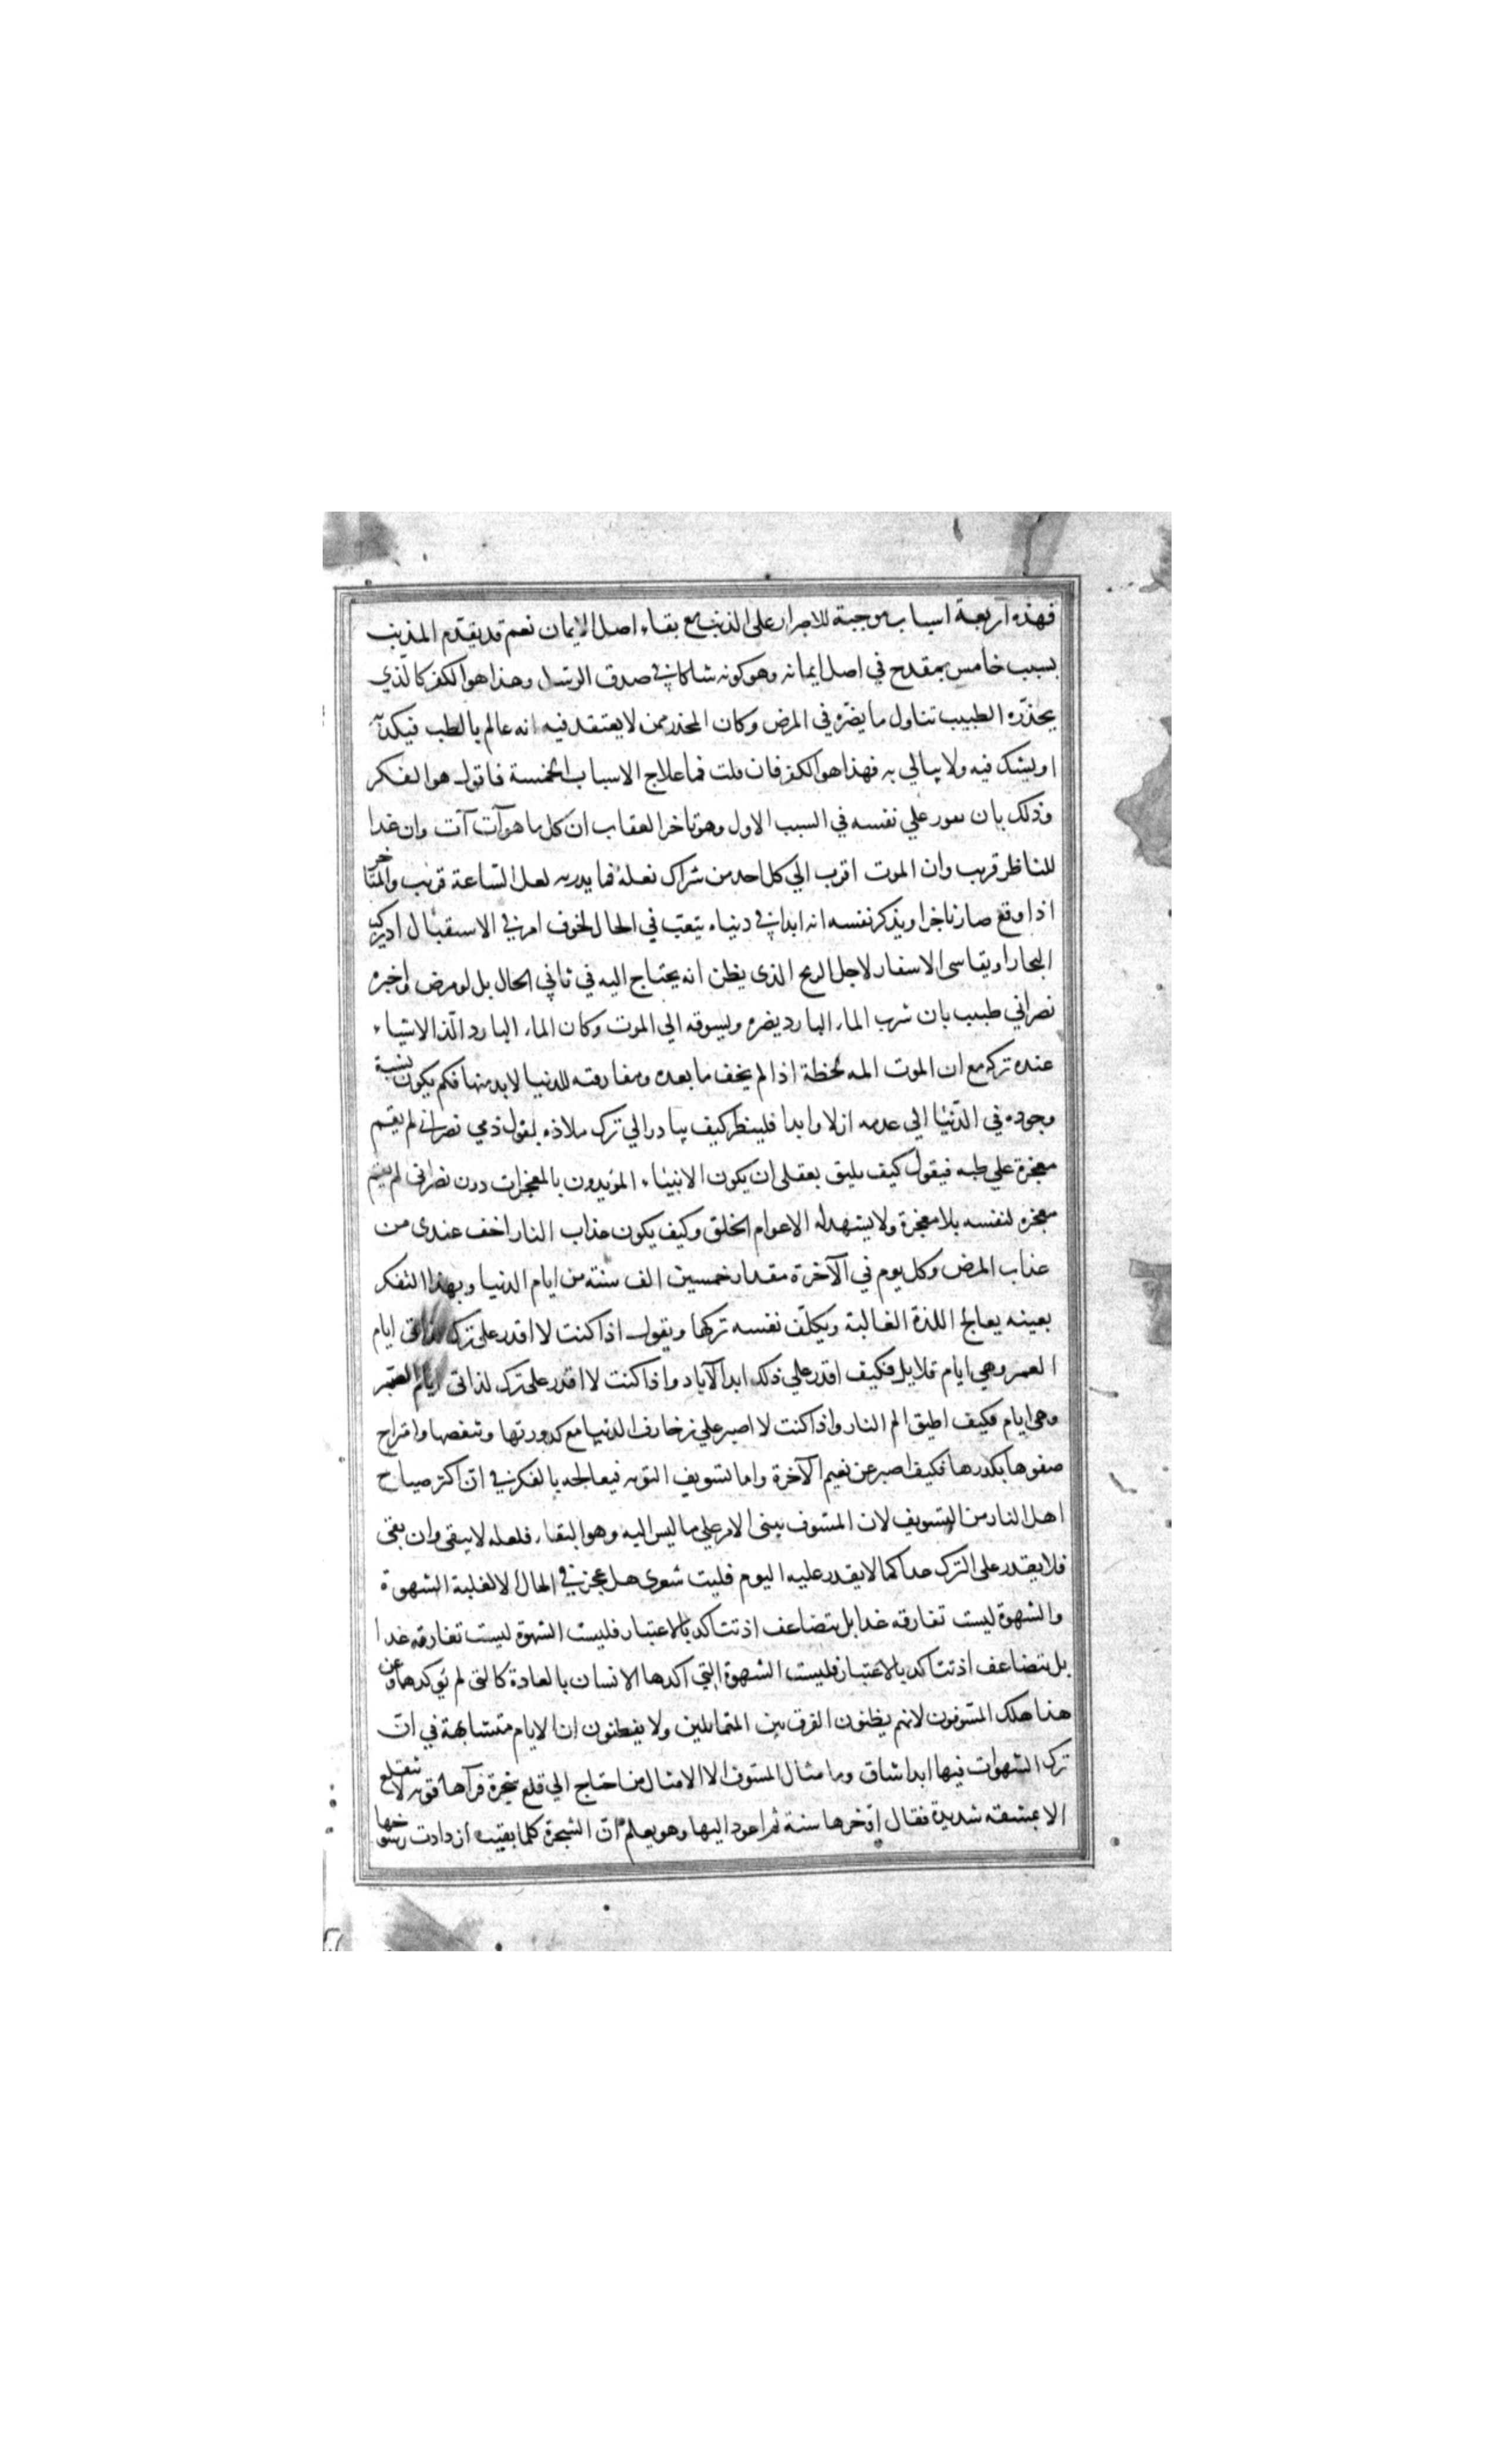 فهذه اربعة اسباب موجبة للاصرار على الذنب مع بقاء اصل الايمان نعم قد يقدم المذنب
بسبب خامس يقدح في اصل ايمانه وهو كونه شاكا في صدق الرسل وهذا هو الكفر كالذي
يحذره الطبيب تناول ما يضره في المرض وكان المحذر ممن لا يعتقد فيه انه عالم بالطب فيكذبه
او يشك فيه ولا يبالي به فهذا هو الكفر فان قلت فما علاج الاسباب الخمسة فاقول هو الفكر
وذلك بان يقرر على نفسه في السبب الاول وهو تاخر العقاب ان كل ما هو آت آت وان غدا
للناظر قريب وان الموت اقرب الي كل احد من شراك نعله فما يدريه لعل الساعة قريب والمتاخر
اذا وقع صار ناجزا ويذكر نفسه انه ابدا في دنياه يتعب في الحال لخوف امر في الاستقبال اذ يركب
البحار او يقاسى الاسفار لاجل الربح الذى يظن انه يحتاج اليه في ثاني الحال بل لو مرض واخبره
نصراني طبيب بان شرب الماء البارد يضره ويسوقه الي الموت وكان الماء البارد الذ الاشياء
عنده تركه مع ان الموت المه لحظة اذا لم يخف ما بعده ومفارقته للدنيا لابد منها فكم يكون نسبة
وجوده في الدنيا الي عدمه ازلا وابدا فلينظر كيف يبادر الي ترك ملاذه بقول ذمي نصراني لم يقم
معجزة علي طبه فيقول كيف يليق بعقلى ان يكون الانبياء المؤيدون بالمعجزات دون نصرانى لم يقم
معجزه لنفسه بلا معجزة ولا يشهد له الا عوام الخلق وكيف يكون عذاب النار اخف عندى من
عذاب المرض وكل يوم في الآخرة مقدار خمسين الف سنة من ايام الدنيا وبهذا التفكر
بعينه يعالج اللذة الغالبة ويكلف نفسه تركها ويقول اذا كنت لا اقدر على ترك لذاتى ايام
العمر وهي ايام قلايل فكيف اقدر علي ذلك ابد الآباد واذا كنت لا اقدر على ترك لذاتى ايام العمر
وهى ايام فكيف اطيق الم النار واذا كنت لا اصبر علي زخارف الدنيا مع كدورتها وتنغصها وامتزاج
صفوها بكدرها فكيف اصبر عن نعيم الآخرة واما تسويف التوبه فيعالجه بالفكر في ان اكثر صياح
اهل النار من التسويف لان المسوف يبنى الامر علي ما ليس اليه وهو البقاء فلعله لا يبقى وان بقى
فلا يقدر على الترك غدا كما لا يقدر عليه اليوم فليت شعرى هل عجز في الحال الا لغلبة الشهوة
والشهوة ليست تفارقه غدا بل تتضاعف اذ تتاكد بالاعتبار فليست الشهوة ليست تفارقه غدا
بل تتضاعف اذ تتاكد بالاعتبار فليست الشهوة التي اكدها الانسان بالعادة كالتى لم يؤكدها وعن
هذا هلك المسوفون لانهم يظنون الفرق بين المتماثلين ولا يفطنون ان الايام متشابهة في ان
ترك الشهوات فيها ابدا شاق وما مثال المسوف الا الامثال من احتاج الي قلع شجرة فرآها قويه لا تنقلع
الا بمشقه شديدة فقال اؤخرها سنة ثم اعود اليها وهو يعلم ان الشجرة كلما بقيت ازدادت رسوخها